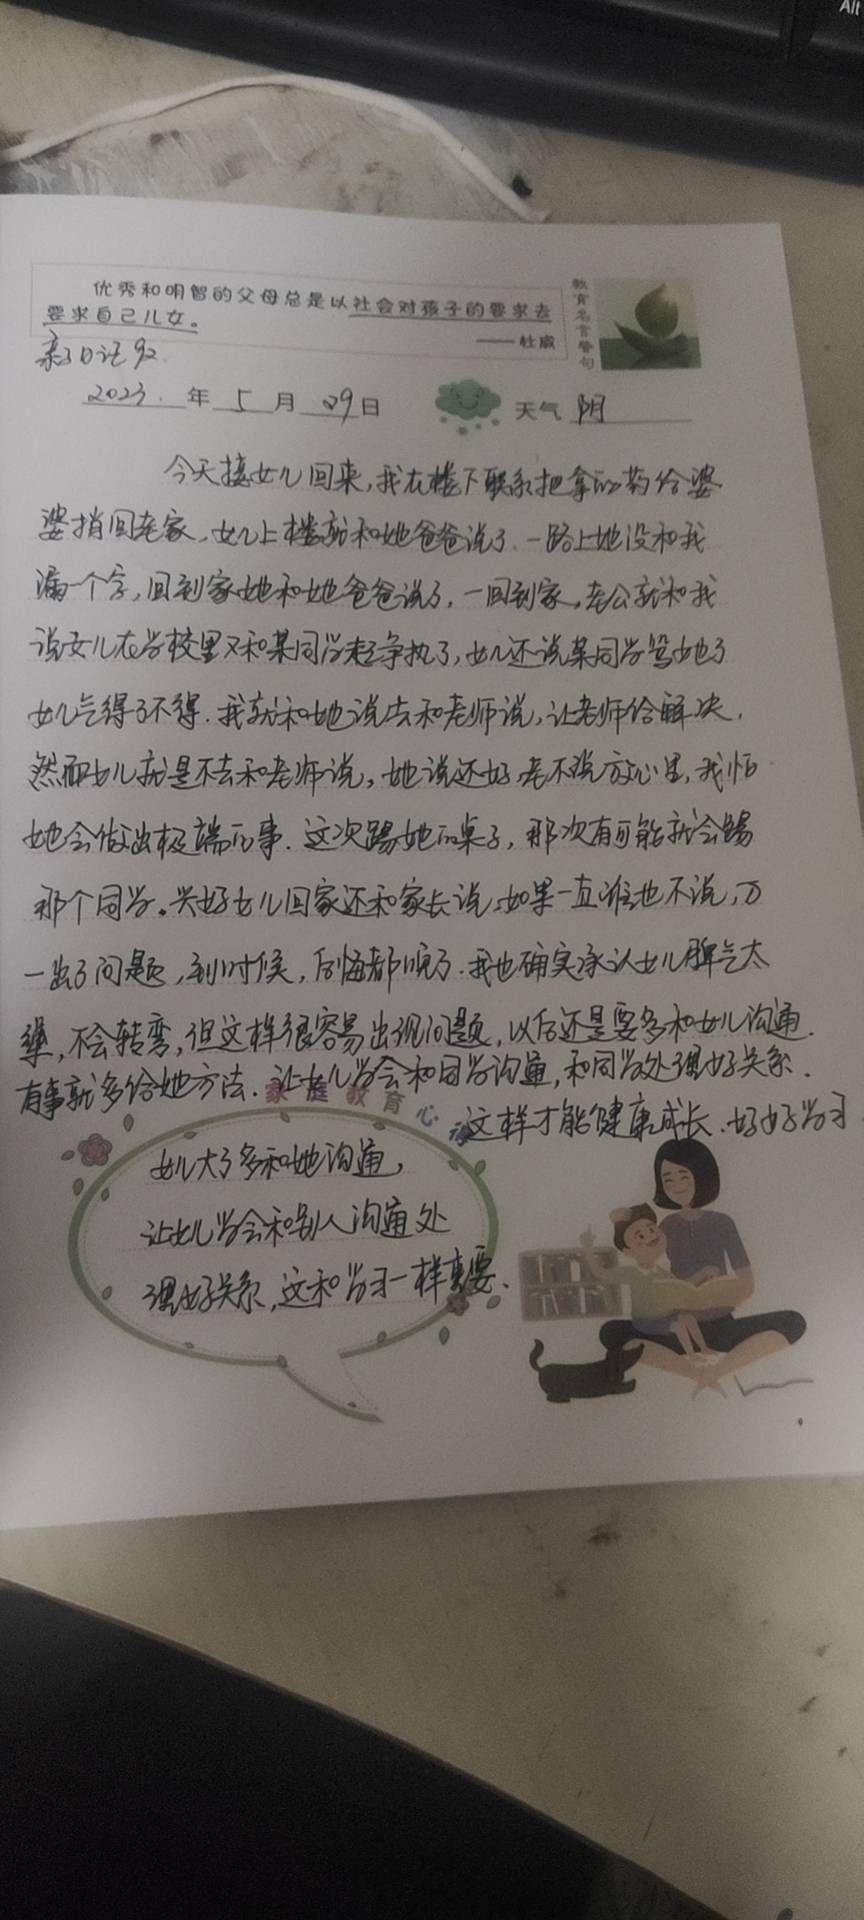 Alt
优秀和明智的父母总是以社会对孩子的要求去
要求自己儿女。
——杜威
教育名言警句
亲子日记 92
2023. 年 5 月 29 日 天气 阴
今天接女儿回来,我在楼下联系把拿的药给婆
婆捎回老家,女儿上楼就和她爸爸说了.一路上她没和我
漏一个字,回到家她和她爸爸说了,一回到家,老公就和我
说女儿在学校里又和某同学起争执了,女儿还说某同学骂她了
女儿气得了不得.我就和她说去和老师说,让老师给解决.
然而女儿就是不去和老师说,她说还好,老不说放心里,我怕
她会做出极端的事.这次踢她的桌子,那次有可能就会踢
那个同学。兴好女儿回家还和家长说,如果一直谁也不说,万
一出了问题,到时候,后悔都晚了.我也确实承认女儿脾气太
犟,不会转弯,但这样很容易出现问题,以后还是要多和女儿沟通.
有事就多给她方法.让女儿学会和同学沟通,和同学处理好关系.
这样才能健康成长.好好学习
家庭教育心
女儿大了多和她沟通,
让女儿学会和别人沟通处
理好关系,这和学习一样重要.